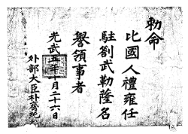 勅命
比國人禮雍任
駐劄武勒隆名
譽領事者
光武 年 月二十六日
外部大臣朴齊純